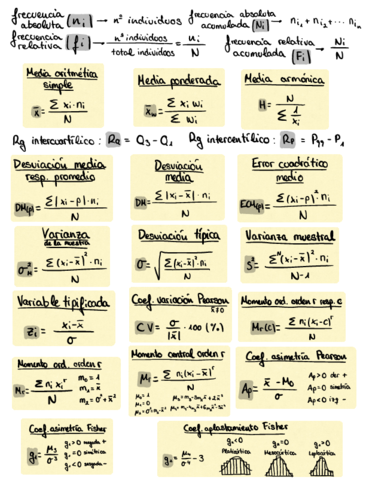 frecuencia absoluta (ni) → nº individuos
frecuencia absoluta acumulada (Ni) → ni₁ + ni₂ + ... niₙ
frecuencia relativa (fi) → nº individuos / total individuos = ni / N
frecuencia relativa acumulada (Fi) → Ni / N
Media aritmética simple
x̄ = Σ xi·ni / N
Media ponderada
x̄w = Σ xi wi / Σ wi
Media armónica
H = N / Σ 1/xi
Rg intercuartílico: RQ = Q3 - Q1
Rg intercentílico: Rp = P99 - P1
Desviación media resp. promedio
DM(p) = Σ|xi - p|·ni / N
Desviación media
DM = Σ|xi - x̄|·ni / N
Error cuadrático medio
ECM(p) = Σ(xi - p)²·ni / N
Varianza de la muestra
σ²N = Σ(xi - x̄)²·ni / N
Desviación típica
σ = √ Σ(xi - x̄)²·ni / N
Varianza muestral
S² = Σᴺ(xi - x̄)²·ni / N-1
Variable tipificada
zi = xi - x̄ / σ
Coef. variación Pearson
x̄≠0
CV = σ / |x̄| ·100 (%)
Momento ord. orden r resp. c
Mr(c) = Σ ni(xi - c)ʳ / N
Momento ord. orden r
Mr = Σ ni xiʳ / N
m0 = 1
m1 = x̄
m2 = σ² + x̄²
Momento central orden r
Mr = Σ ni(xi - x̄)ʳ / N
Coef. asimetría Pearson
Ap = x̄ - Mo / σ
Ap>0 der +
Ap=0 simetría
Ap<0 izq -
Coef. asimetría Fisher
g1 = μ3 / σ³
g1>0 sesgada +
g1=0 simétrica
g1<0 sesgada -
Coef. aplastamiento Fisher
g2 = μ4 / σ⁴ - 3
g2<0
Platicúrtica
g2=0
Mesocúrtica
g2>0
Leptocúrtica